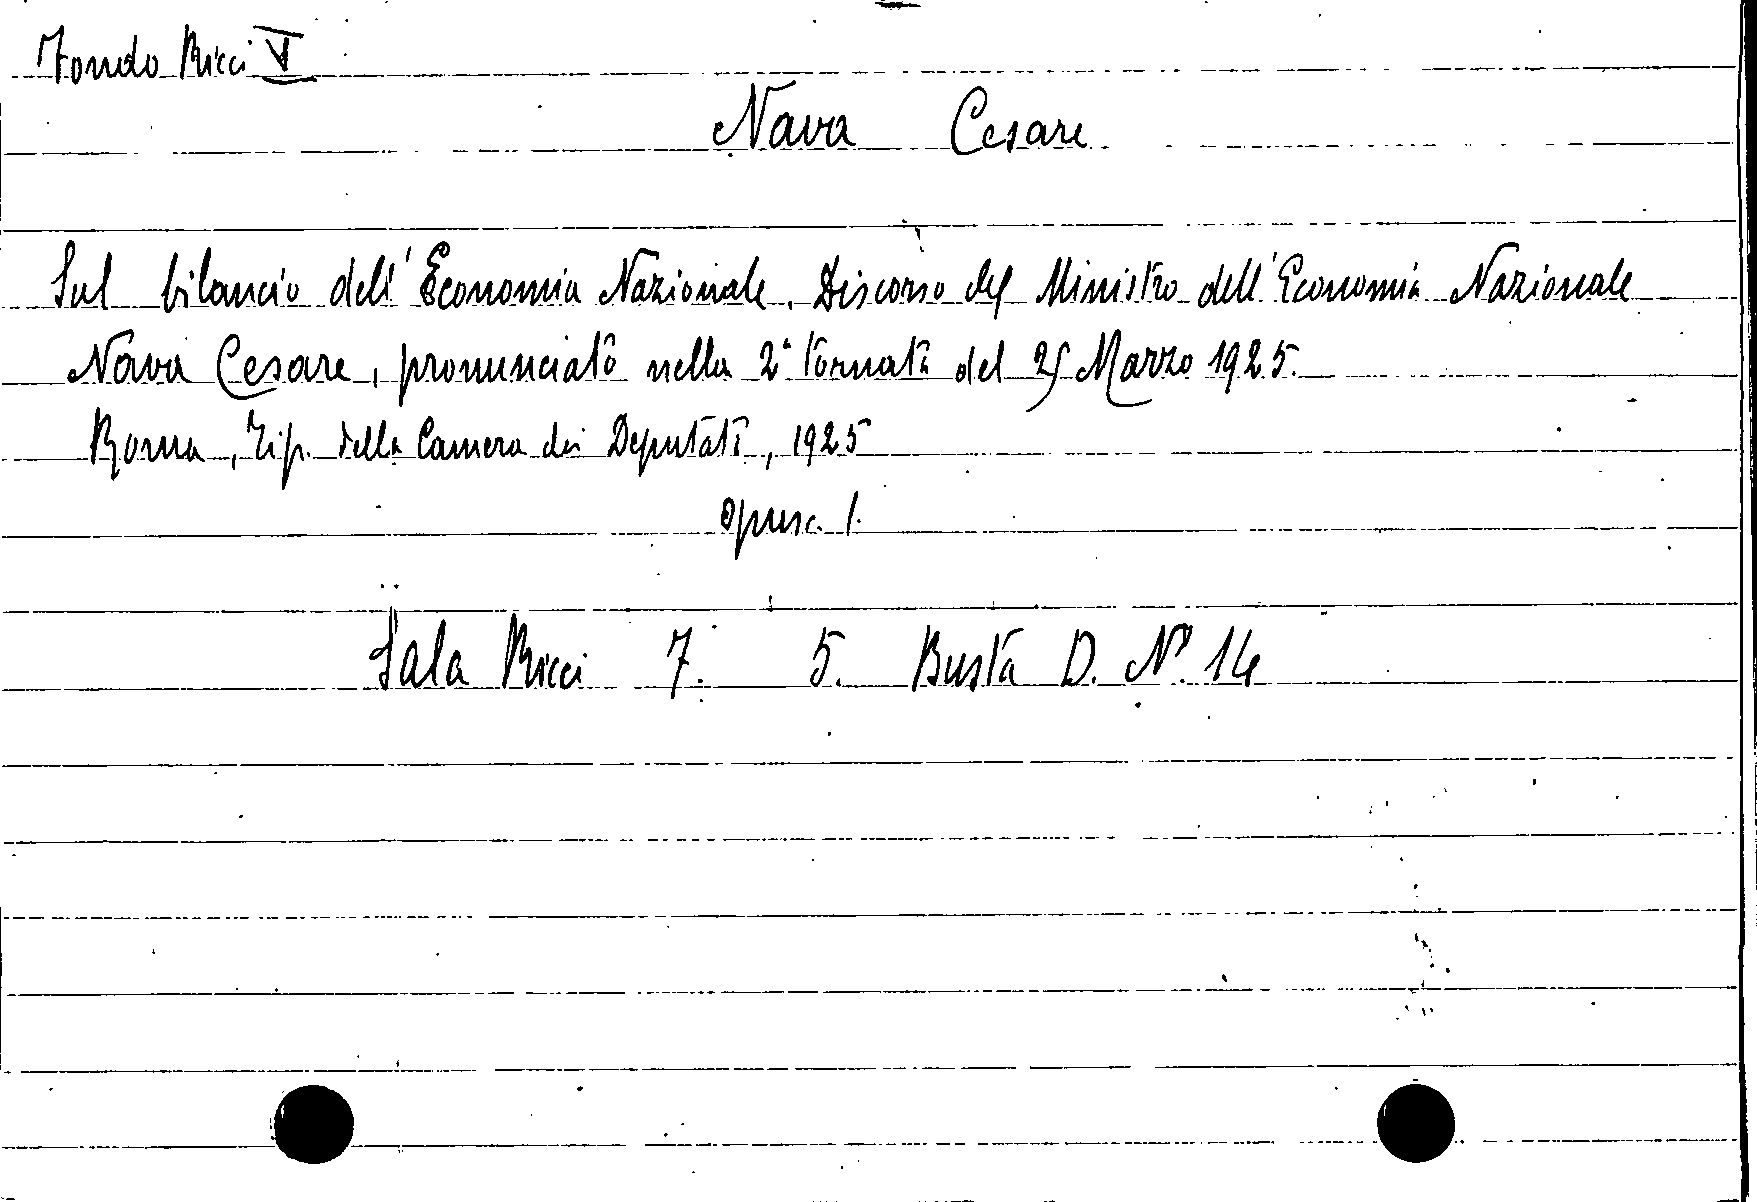 Fondo Ricci V
Nava Cesare
Sul bilancio dell'Economia Nazionale. Discorso del Ministro dell'Economia Nazionale
Nava Cesare, pronunciato nella 2ª tornata del 25 Marzo 1925.
Roma, Tip. della Camera dei Deputati, 1925
opusc. 1.
Sala Ricci 7. 5. Busta D. N° 14